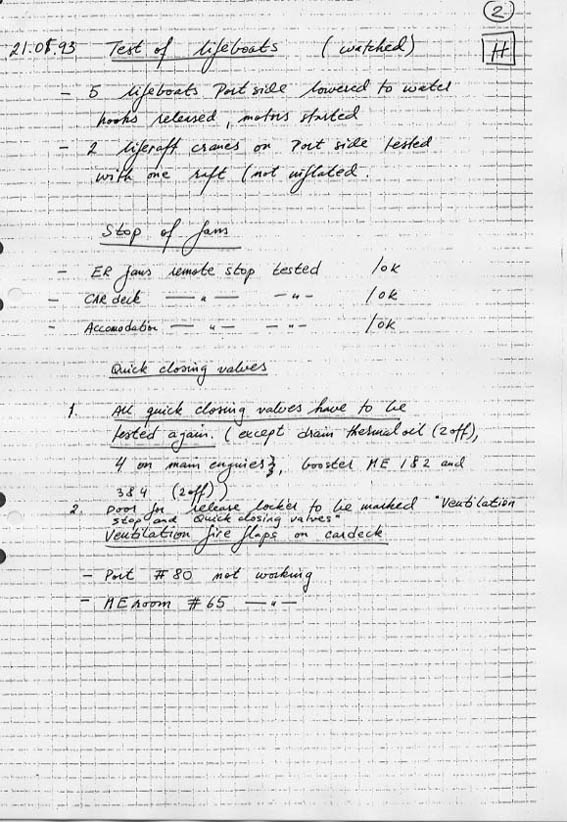 2
21.08.93 Test of lifeboats (watched) H
- 5 lifeboats Port side lowered to water
hooks released, motors started
- 2 liferaft cranes on Port side tested
with one raft (not inflated.
Stop of fans
- ER fans remote stop tested /ok
- CAR deck — " — — " — /ok
- Accomodation — " — — " — /ok
Quick closing valves
1. All quick closing valves have to be
tested again. (except drain thermal oil (2 off),
4 on main engines}, booster ME 1&2 and
3&4 (2 off))
2. Door for release locker to be marked "Ventilation
stop and Quick closing valves"
Ventilation fire flaps on cardeck
- Port #80 not working
- ME room #65 — " —